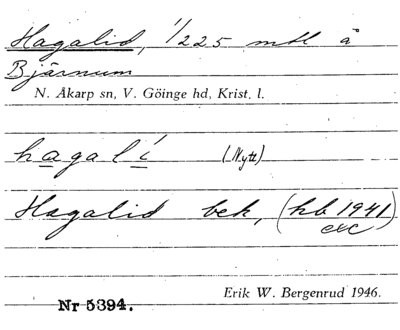 Hagalid, 1/225 mtl å
Bjärnum
N. Åkarp sn, V. Göinge hd, Krist. l.
hagalí (Nytt)
Hagalid bek, (kb 1941)
exc
Erik W. Bergenrud 1946.
Nr 5394.